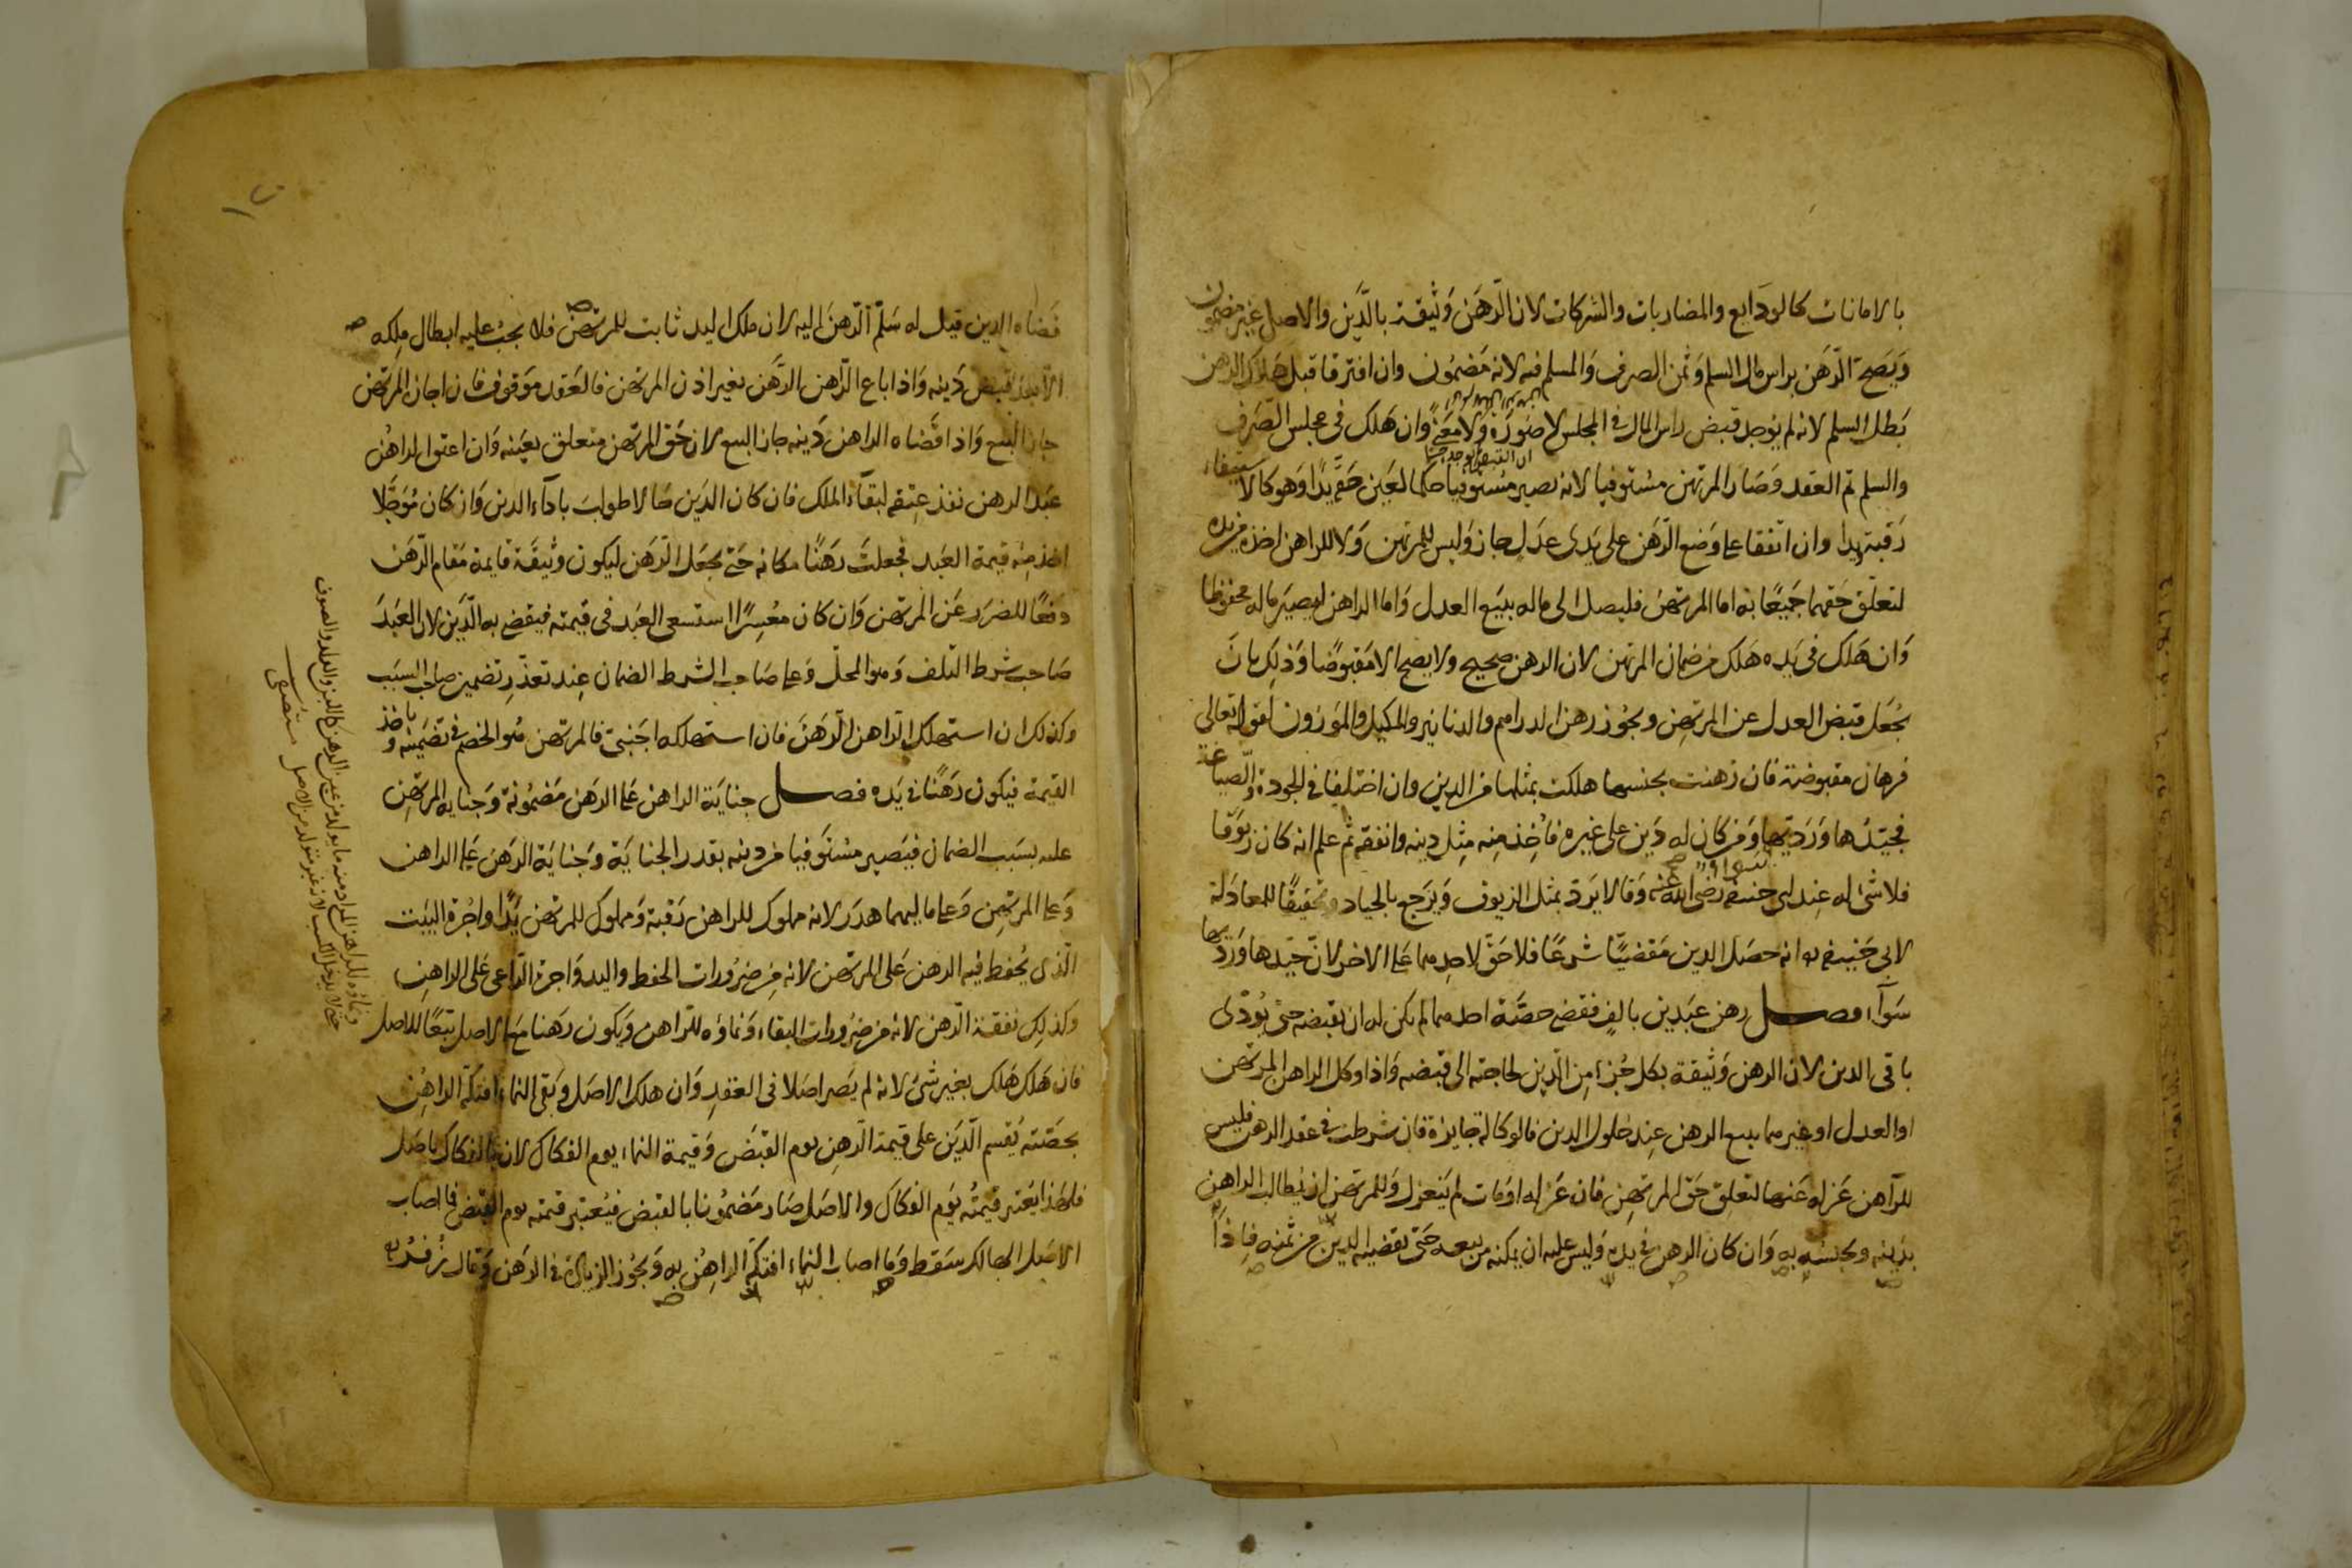 بالامانات كالودايع والمضاربات والشركات لان الرَّهَن وَثيقة بالدَّين والاصل غير مضمون
وَيَصحّ الرَّهَن براس مال السلم وَثمن الصرف وَالمسلم فيه لانه مَضمُون وان افترقا قبل هَلاك الرهن
بَطل السلم لانه لم يوجد قبض راس المال في المجلس لا صُورَة وَلا مَعنًى وان هَلك في مجلس الصَرف
ان القبض لم يوجد حسا
والسلم تم العقد وَصَار المرتهن مسْتوفيا لانه يصير مسْتوفيا حكما لعَين حَقه يَدًا وَهو كالاستيفاء
رَقبة ويدا وان اتفقا على وَضع الرَّهَن على يَدى عدَل جاز وَليس للمرتهن وَلا للراهن اخذه من يده
لتعلّق حَقهما جَميعًا به اما المرتهن فليصل الى ماله ببيَع العدل وَاما الراهن ليصيَر ماله محفوظا
وَان هَلك في يَده هَلك من ضمان المرتهن لان الرهن صحيح ولا يصح الا مَقبوضًا وَذلك بان
يُجْعَل قبض العدل عن المرتهِن ويجُوز رهن الدراهم والدنانير والمكيل والموَزون لقوله تعالى
فرهان مقبوضة فان رهنت بجنسها هلكت بمثلها من الدين وان اختلفا في الجودة والصياغة
فجيّدها وَرَديّها وَمن كان له دَين على غيره فاُخِذ مِنه مِثل دينه وانفقه ثم علم انه كان زيوَفا
فلا شئ له عِند ابى حنيفة رضى الله عنه وَقالا يَردّ بمثل الزيوف وَيَرجع بالجياد تحقيقًا للمعادَلة
لابى حَنيفة انه حصَل الدين مَقضيًّا شرعًا فلا حَقّ لاحدِهما على الاخر لانّ جيّدها وَرَديها
سَوآء فصل رهن عبَدين بالفٍ فقضى حصَّة احدهما لم يكن له ان يقبضه حتى يُؤدّى
باقى الدين لان الرهن وَثيقة بكل جُزء مِن الدَّين لحاجته الى قبضه وَاذا وكل الراهن المرتهن
او العدل او غيرهما ببيع الرهن عِند حلول الدين فالوكالة جايزة فان شرطت في عقد الرهن فليس
للرّاهن عَزله عَنها لتعلق حَق المرتهِن فان عَزله او مَات لم يَنعزل وَللمرتهن ان يُطالب الراهن
بدَينه وَيحبسَه به وَان كان الرهن في يده وَليس عليه ان يمكنه من بيعه حَتى يقضيه الدين من ثمنه فاِذا
قَضاه الدين قيل له سَلّم الرّهنَ اليه لان ملك اليد ثابت للمرتهن فلا يجبُ عليه ابطال مِلكه
الا بعد قبض دَينه وَاذا باع الرّاهن الرَّهَن بغير اذن المرتهن فالعَقد موَقوف فان اجاز المرتهن
جاز البيع وَاذا قضاه الراهن دَينه جاز البيع لان حَق المرتهن متعلق بعَينه وَان اعتق الراهُن
عَبد الرهن نفذ عِتقه لبقآء الملك فان كان الدَين حَالا طولبَ باداء الدين وَان كان مُوَجَّلا
اخذ مِنه قيمة العَبد فجعلتَ رَهَنًا مكانه حَتّى يحَل الدين ليكون وَثيقَة قايمة مَقام الرّهَن
دَفعًا للضرَر عَن المرتهن وَان كان معُسِرًا استسعى العَبد في قيمته فيقضى به الدَّيَن لان العَبدَ
صَاحب شرط التلف وَهو المحلّ وَعلى صَاحب الشرط الضمان عِند تعذّر تضمين صاحب السَبَب
وكذلك ان استهلك الرّاهن الرّهَنَ فان استهلكه اجنبىّ فالمرتهن هُو الخصم في تضمينه وياخذ
القيمة فيكون رَهَنًا في يَده فصل جنايَة الراهن عَلى الرهَن مَضمُونة وَجناية المرتِهن
عليه بسَبَب الضمان فيَصير مسْتَوفيا من دينه بقدر الجنايَة وَجنايَة الرهَن عَلى الراهن
وَعلى المرتِهن وَعلى ماليهما هدَر لانه مملوك للراهن رَقبة وَمملوك للمرتهن يَدًا واجُرة البَيت
الّذى يُحفظ فيه الرهن عَلى المرتهن لانه مِن ضرُورات الحفظ واليد وَاجرة الرّاعى عَلى الراهِن
وكذلِك نفقة الرّهن لانه من ضرُورات البقاء وَنماؤه للرّاهن وَيكون رهَنا مَع الاصل تبَعًا للاصل
فان هَلك هَلك بغير شئ لانه لم يَصر اصَلا في العَقدِ وَان هلك الاصَل وَبَقى النماء افتكه الراهِن
بحَصّته يُقسم الدَّيَن على قيمة الرّهِن يوم القبَض وَقيمة النماء يوم الفكاك لانه بالفكاك يَاصَل
فلهذا يَعْتبر قيمَتُه يوَم الفكاك والاصَل صَار مَضمُونا بالقبض فيُعتبر قيمته يوم القبض فما اصاب
الاصَل الهالك سَقط وَما اصاب النماء افتكَّه الراهِن به وَيجُوز الزيادَة في الرهَن وَقال زُفَرُ
ونماؤه للراهن المراد منه ما يولد من عين الرهن كاللبن والولد والصوف
حتى لا يدخل الكسب لانه غير متولد من الاصل مستصفى